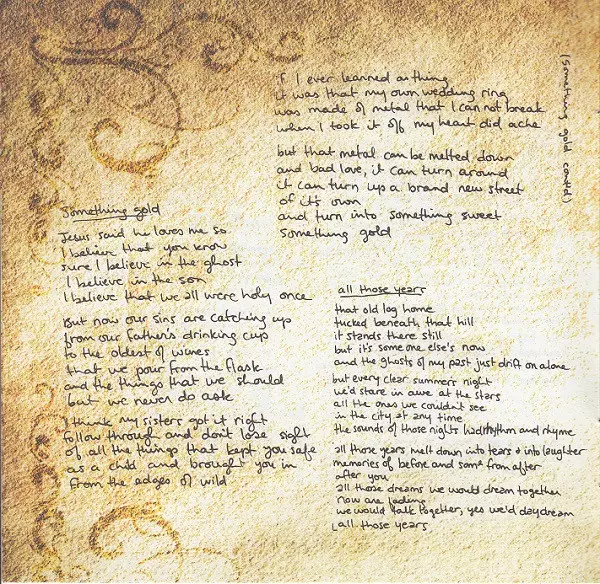 Something gold
Jesus said he loves me so
I believe that you know
sure I believe in the ghost
I believe in the son
I believe that we all were holy once
But now our sins are catching up
from our father's drinking cup
to the oldest of wines
that we pour from the flask
and the things that we should
but we never do ask
I think my sisters got it right
follow through and don't lose sight
of all the things that kept you safe
as a child and brought you in
from the edges of wild
(Something gold contd)
if I ever learned anything
it was that my own wedding ring
was made of metal that I can not break
when I took it off my heart did ache
but that metal can be melted down
and bad love, it can turn around
it can turn up a brand new street
of it's own
and turn into something sweet
something gold
all those years
that old log home
tucked beneath that hill
it stands there still
but it's someone else's now
and the ghosts of my past just drift on alone
but every clear summers night
we'd stare in awe at the stars
all the ones we couldn't see
in the city at any time
the sounds of those nights had rhythm and rhyme
all those years melt down into tears & into laughter
memories of before and some from after
after you
all those dreams we would dream together
now are fading
we would talk together, yes we'd daydream
all those years